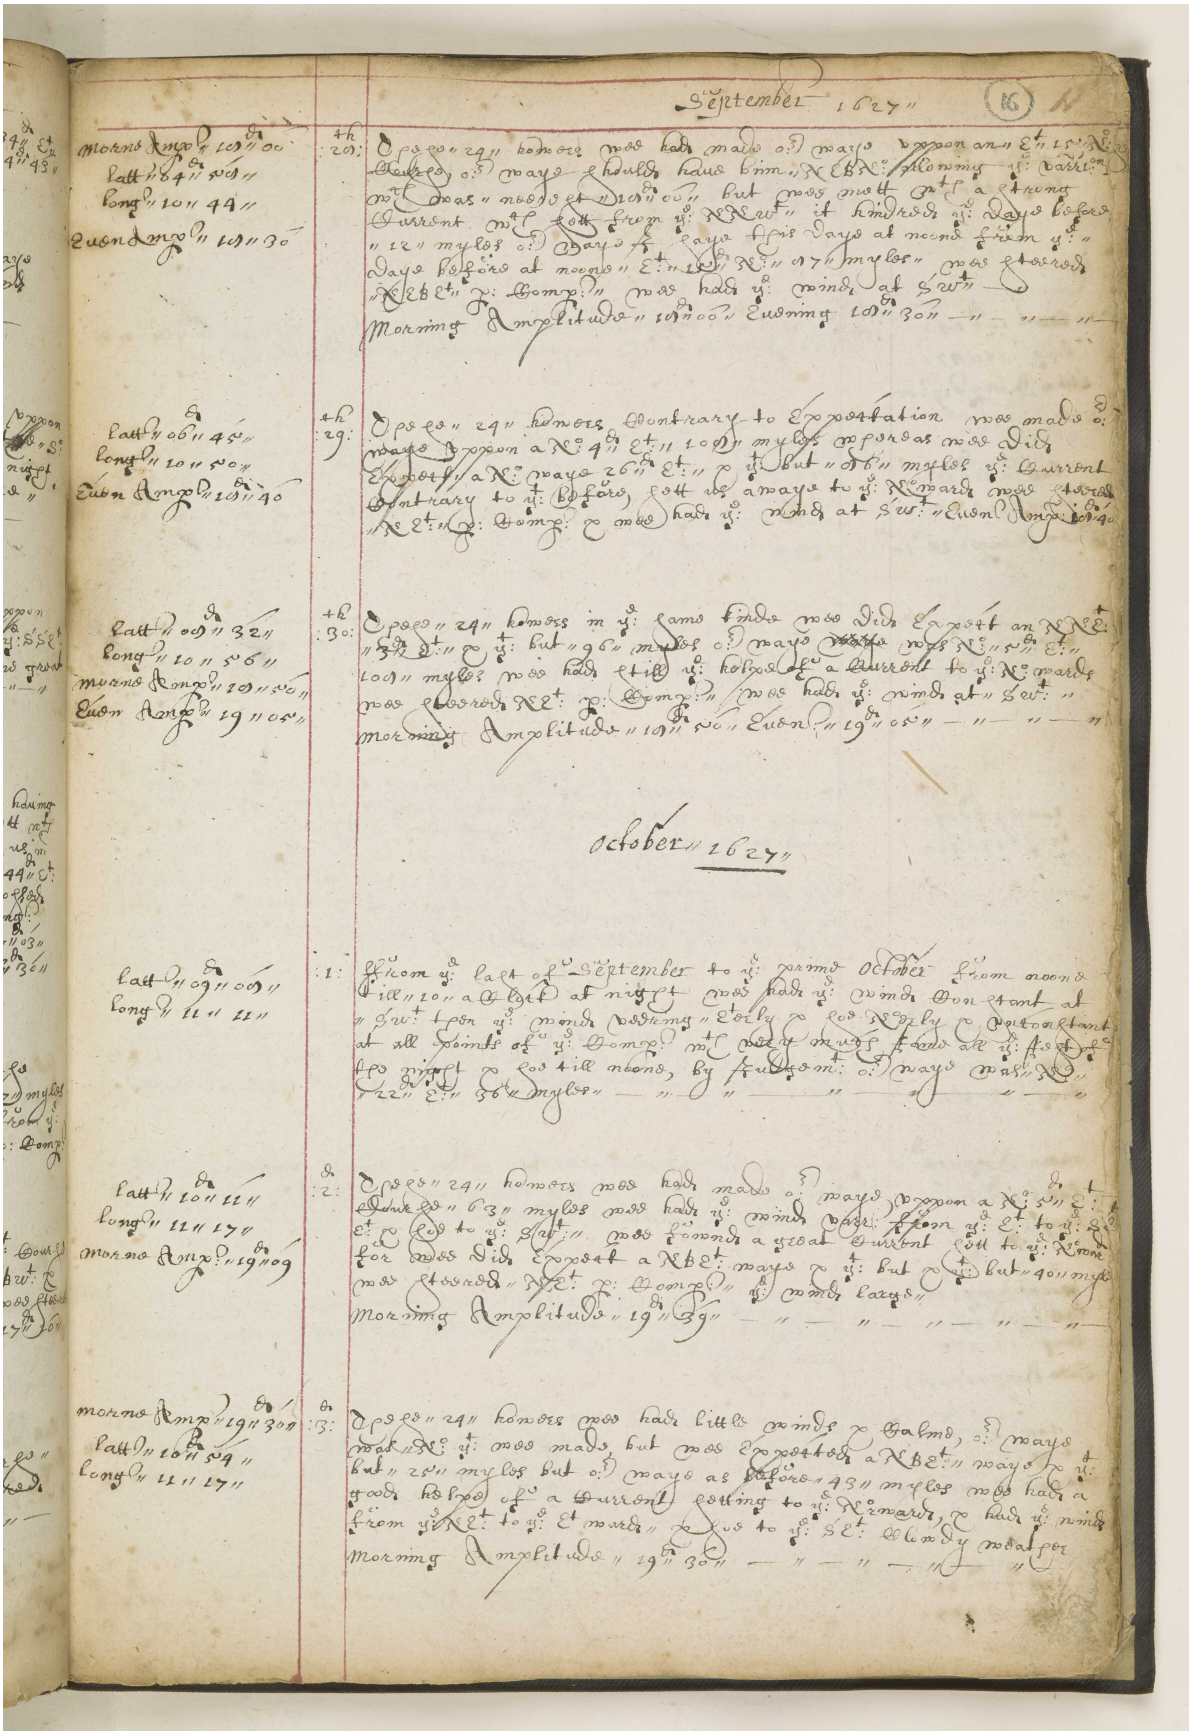 September 1627„
16
Morne Amp: 18„ 00
latt: 04„ 58„
long: 10„ 44„
Euen Amp: 18„ 30
:28: th
These„ 24„ howers wee had made or waye vppon an„ Et„ 15„ No:
Course, or waye should haue binn„ NEBNo: allowing ye: varr:on
wch was„ neerest„ 18d„ 00„ but wee mett wth a strong
Current wch sett from ye: NNWt„ it hindred ye: daye before
„ 12„ myles or waye saye this daye at noone from ye:„
daye before at noone„ Et:„ 15d No:„ 87„ myles„ wee steered
„NEBEt„ p: Comp:„ wee had ye: wind at SWt„
Morning Amplitude„ 18d„ 00„ Euening 18d„ 30„
latt: 06„ 45„
long: 10„ 50„
Euen Amp: 18„ 40
:29: th
These„ 24„ howers Contrary to Expectation wee made or:
waye vppon a No: 4d Et:„ 108„ myles whereas wee did
Expect„ a No: waye 26d Et:„ & yt: but„ 86„ myles ye: Current
Contrary to yt: before, sett us awaye to ye: Noward wee steered
„NEt:„ p: Comp: & wee had ye: wind at SWt:„ Euen: Amp: 18„ 40
latt: 08„ 32„
long: 10„ 56„
Morne Amp: 18„ 50„
Euen Amp: 19„ 05„
:30: th
These„ 24„ howers in ye: same kinde wee did Expect an NNEt:
„ 3d Et:„ & yt: but„ 96„ myles or waye was No:„ 5d Et:„
108„ myles wee had still ye: helpe of a Current to ye: Nowards
wee steered NEt: p: Comp:„ wee had ye: wind at„ SWt: „
Morning Amplitude„ 18d„ 50„ Euen:„ 19d„ 05„
October„ 1627„
latt: 09„ 08„
long: 11„ 11„
:1:
ffrom ye: last of September to ye: prime October from noone
till„ 10„ a Clock at night wee had ye: wind Constant at
„ SWt: then ye: wind veering„ Eterly & soe Noerly & vnconstant
at all points of ye: Comp: wth very much raine all ye: rest of
the night & soe till noone, by Judgemt: or waye was„ No:„
„ 22d„ Et:„ 36„ myles„
latt: 10„ 11„
long: 11„ 17„
Morne Amp: 19„ 09
:2: d
These„ 24„ howers wee had made or waye, vppon a No: 5d„ Et:
Course„ 63„ myles wee had ye: wind varr: from ye: Et: to ye:
Et: & soe to ye: SWt:„ wee fownd a great Current sett to ye: Noward
for wee did Expect a NBEt: waye & yt: but & yt: but„ 40„ myles
wee steered„ NEt: p: Comp:„ ye: wind large„
Morning Amplitude„ 19d„ 39„
Morne Amp: 19„ 30„
latt: 10„ 54„
long: 11„ 17„
:3: d
These„ 24„ howers wee had little winds & Calme, or waye
was„ No: yt: wee made, but wee Expected a NBEt:„ waye & yt:
but„ 25„ myles but or waye as before„ 43„ myles wee had a
good helpe of a Current setting to ye: Nowards, & had ye: wind
from ye: NEt: to ye: Et wards„ & soe to ye: SEt: Clowdy weather
Morning Amplitude„ 19d„ 30„